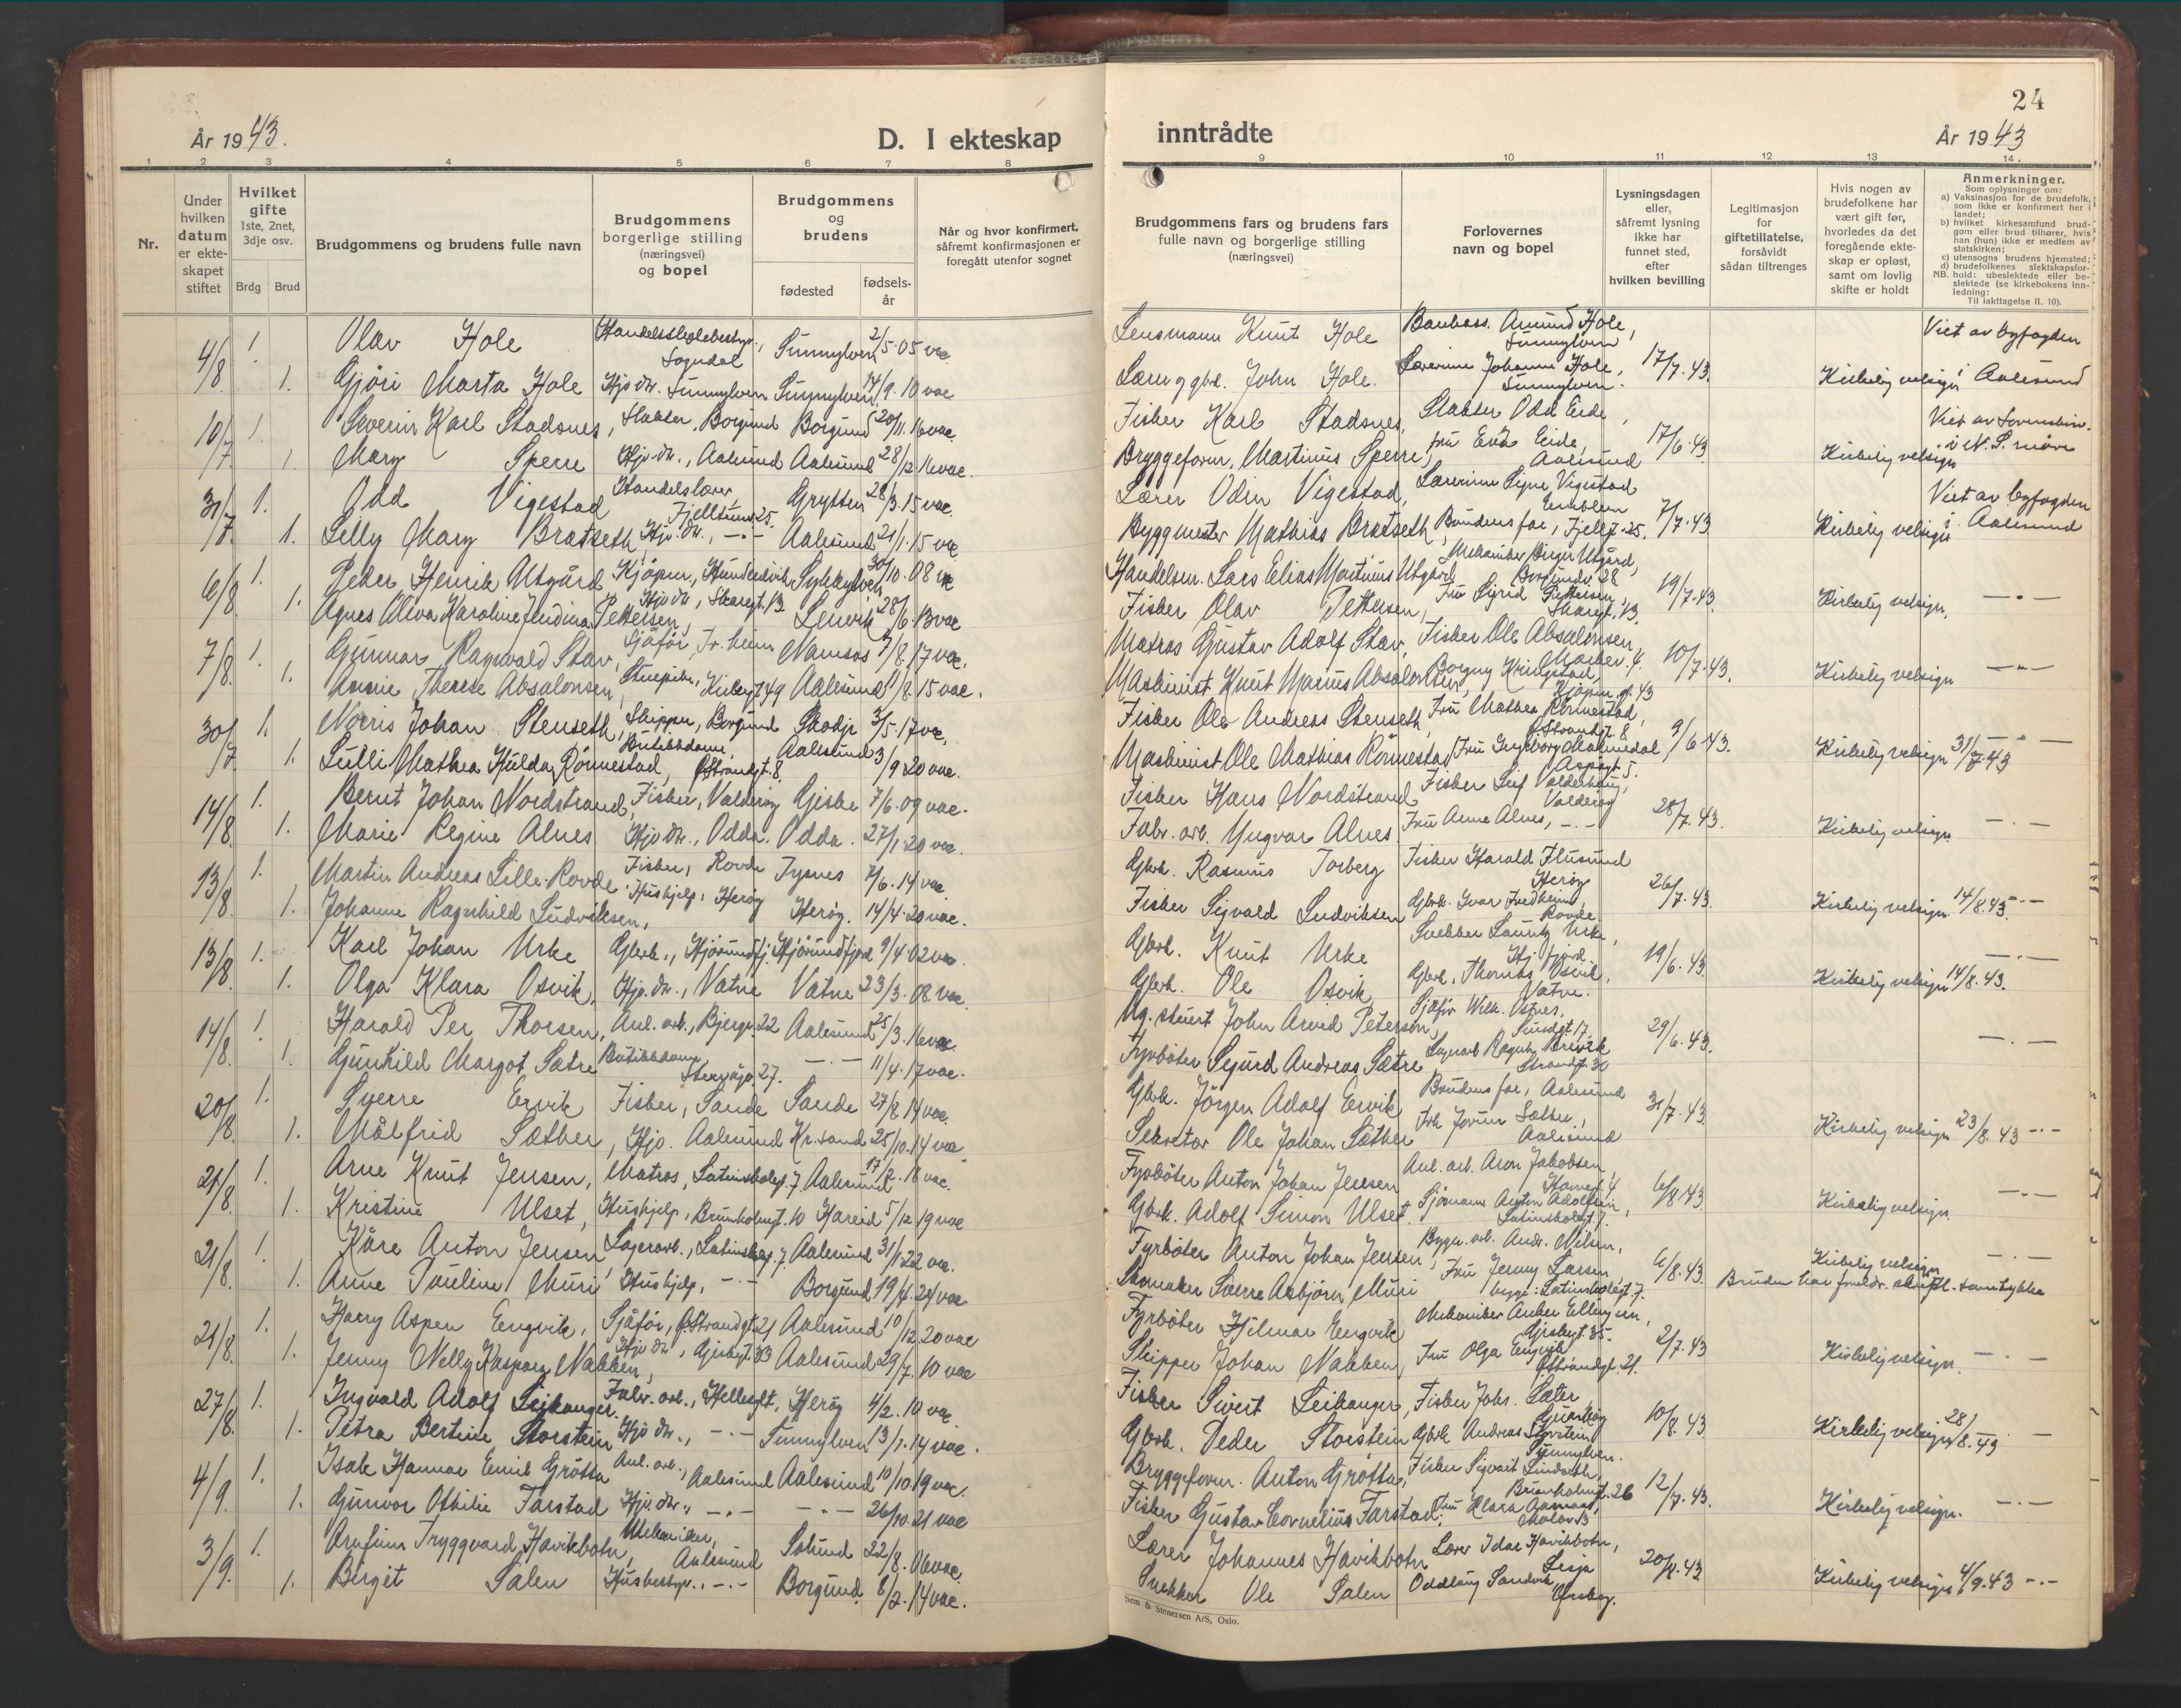 År 1943.
D. I ekteskap
1 2 3 4 5 6 7 8
Nr.
Under hvilken datum er ekteskapet stiftet
Hvilket gifte
1ste, 2net, 3dje osv.
Brdg Brud
Brudgommens og brudens fulle navn
Brudgommens borgerlige stilling (næringsvei) og bopel
Brudgommens og brudens
fødested
fødselsår
Når og hvor konfirmert, såfremt konfirmasjonen er foregått utenfor sognet
4/8 1. Olav Hole Sogndal Sunnylven 2/5-05 vac.
1. Gjöri Marta Hole Hjv. dtr. Sunnylven Sunnylven 14/9. 10 vac
10/7 1. Severin Karl Stadsnes, Slakter, Borgund Borgund 20/11. 16 vac.
1. Mary Sperre Hjv. dtr., Aalesund Aalesund 28/12 16 vac.
31/7. 1. Odd Vigestad Handelslærer, Fjelltunv. 25. Grytten 28/3. 15 vac.
1. Lilly Mary Bratseth, Hjv. dtr., -"- Aalesund 21/1. 15 vac
6/8. 1. Peder Henrik Utgård Kjöpm., Hundeidvik Sykkylven 30/10. 08 vac
1. Agnes Oliva Karoline Jendina Pettersen, Hjv. dtr., Skaregt. 13 Lenvik 28/6. 13 vac
7/8. 1. Gunnar Ragnvald Stav, Sjåför, Tr.heim Namsos 7/8. 17 vac.
1. Annie Therese Absalonsen, Stuepike, Kirkegt. 49 Aalesund 11/8. 15 vac.
30/7 1. Norris Johan Stenseth, Skipper, Borgund Skodje 3/5. 17 vac.
1. Lulli Mathea Hulda Rönnestad, Butikkdame, Ö. Strandgt. 8. Aalesund 3/9 20 vac.
14/8. 1. Bernt Johan Nordstrand, Fisker, Valderöy Giske 7/6. 09 vac.
1. Marie Regine Alnes Hjv. dtr., Odda. Odda. 27/1. 20 vac.
13/8. 1. Martin Andreas Lille-Rovde Fisker, Rovde Tysnes 7/6. 14 vac
1. Johanne Ragnhild Ludviksen, Hushjelp, Heröy Heröy. 14/4. 20 vac.
13/8. 1. Karl Johan Urke Gbrk., Hjörundfj. Hjörundfjord 9/4. 02 vac.
1. Olga Klara Osvik, Hjv. dtr., Vatne Vatne 23/3. 08 vac.
14/8. 1. Harald Per Thorsen, Anl. arb., Bjergv. 22 Aalesund 25/3. 16 vac.
1. Gunhild Margot Sætre Butikkdame, Stenvågv. 27. -"- 11/4. 17 vac.
20/8. 1. Sverre Ervik Fisker, Sande Sande 27/8 14 vac.
1. Målfrid Sæther, Hjv. Aalesund Kr.sand 25/10. 14 vac
21/8. 1. Arne Knut Jensen, Matros, Latinskolegt. 7 Aalesund 17/2. 18 vac.
1. Kristine Ulset, Hushjelp, Brunholmgt. 10 Hareid 5/12 19 vac
21/8. 1. Kåre Anton Jensen, Lagerarb., Latinskolegt. 7 Aalesund 31/1 22 vac.
1. Anne Pauline Muri Hushjelp, -"- Borgund 19/4. 24 vac
21/8. 1. Harry Aspen Engvik, Sjåför, Ö. Strandgt. 21 Aalesund 10/12 20 vac
1. Jenny Nelly Kaspara Nakken, Hjv. dtr., Gjeskegt. 33 Aalesund 29/7. 10 vac
27/8. 1. Ingvald Adolf Leikanger. Fabr. arb., Hellesylt, Heröy 4/2. 10 vac
1. Petra Bertine Storstein Hjv. dtr., -"- Sunnylven 13/1. 14 vac.
4/9. 1. Isak Hannar Emil Grötta Anl. arb., Aalesund Aalesund 10/10. 19 vac.
1. Gunvor Othilie Tarstad Hjv. dtr., -"- -"- 26/10. 21 vac
3/9. 1. Arnfinn Tryggvard Havikbotn, Mekaniker, Aalesund Solund 22/8. 06 vac.
1. Birgit Salen Husbestyr., -"- Borgund. 8/2. 14 vac.
24
inntrådte
År 1943
9 10 11 12 13 14.
Brudgommens fars og brudens fars fulle navn og borgerlige stilling (næringsvei)
Forlovernes navn og bopel
Lysningsdagen eller, såfremt lysning ikke har funnet sted, efter hvilken bevilling
Legitimasjon for giftetillatelse, forsåvidt sådan tiltrenges
Hvis nogen av brudefolkene har vært gift før, hvorledes da det foregående ekteskap er opløst, samt om lovlig skifte er holdt
Anmerkninger.
Som oplysninger om:
a) Vaksinasjon for de brudefolk, som ikke er konfirmert her i landet;
b) hvilket kirkesamfund brudgom eller brud tilhører, hvis han (hun) ikke er medlem av statskirken;
c) utensogns brudens hjemsted;
d) brudefolkenes slektskapsforhold: ubeslektede eller beslektede (se kirkebokens innledning:
NB.
Til iakttagelse II. 10).
Lensmann Knut Hole Amund Hole, Sunnylven Viet av byfogden
Gbrk. John Hole. Lærerinne Johanne Hole, Sunnylven. 17/7. 43. Kirkelig velsign. i Aalesund
Fisker Karl Stadsnes, Slakter Odd Eide,
Bryggeform. Martinus Sperre, Fru Eva Eide, Aalesund 17/6. 43 Kirkelig velsign
Lærer Odin Vigestad, Lærerinne Signe Vigestad Emblem Viet av byfogden
Byggmester Mathias Bratseth, Brudens far, Fjellt. 25. 7/7. 43 Kirkelig velsign i Aalesund
Handelsm. Lars Elias Martinus Utgård Mekaniker Birger Utgård, Borgundv. 28
Fisker Olav Pettersen, Fru Sigrid Pettersen, Skaregt. 13. 19/7. 43. Kirkelig velsign. -"-
Matros Gustav Adolf Stav, Fisker Ole Absalonsen,
Maskinist Knut Marius Absalonsen, Borgny Kringstad, Kjöpm. gt. 43 10/7. 43. Kirkelig velsign -"-
Fisker Ole Andreas Stenseth, Fru Mathea Rönnestad, Ö. Strandgt. 8
Maskinist Ole Mathias Rönnestad Fru Ingeborg Malmedal, Aspegt 5. 9/6. 43. Kirkelig velsign 31/7. 43 -"-
Fisker Hans Nordstrand Fisker Leif Valderhaug, Valderöy
Fabr. arb. Yngvar Alnes. Fru Anne Alnes, -"- 28/7. 43. Kirkelig velsign -"-
Gbrk. Rasmus Torberg Fisker Harald Flusund Heröy
Fisker Sigvald Ludviksen Gbrk. Ivar Fredheim, Rovde. 26/7. 43. Kirkelig velsign 14/8. 43. -"-
Gbrk. Knut Urke Snekker Lauritz Urke, Hj. fjord.
Gbrk. Ole Osvik, Gbrk. Thomas Osvik, Vatne. 19/6. 43. Kirkelig velsign 14/8. 43. -"-
Ug. stuert John Arvid Peterson, Sjåför Wilh. Ostnes,
Fyrböter Sigurd Andreas Sætre Lagerarb Ragnv. Brevik Strandgt. 30 29/6. 43. -"-
Gbrk. Jörgen Adolf Ervik Brudens far, Aalesund
Sekretær Ole Johan Sæther Frk Jorunn Sæther, Aalesund 31/7. 43. Kirkelig velsign 23/8. 43 -"-
Fyrböter Anton Johan Jensen Anl. arb. Aron Jakobsen,
Gbrk. Adolf Simon Ulset. Sjömann Anton Adolfsen, Latinskolegt. 7. 6/8 43. Kirkelig velsign. -"-
Fyrböter Anton Johan Jensen, Bygn. arb. Andr. Nilsen,
Skomaker Sverre Asbjörn Muri Fru Jenny Larsen, begge: Latinskolegt. 7. 6/8. 43. Kirkelig velsign -"-
Fyrböter Hilmar Engvik Mekaniker Anker Ellingsen, Gjeskegt. 35.
Skipper Johan Nakken, Fru Olga Engvik Ö. Strandgt. 21. 2/7. 43 Kirkelig velsign. -"-
Fisker Sivert Leikanger, Fisker Johs. Sæter
Gbrk. Peder Storstein Gbrk Andreas Storstein Sunnylven. 10/8. 43 Kirkelig velsign 28/8. 43 -"-
Bryggeform. Anton Grötta, Fisker Sigvart Lindseth, Brunholmgt. 26
Fisker Gustav Cornelius Tarstad, Fru Klara Aasmaas, 12/7. 43. Kirkelig velsign. -"-
Lærer Johannes Havikbotn Lærer Idar Havikbotn, Lesja
Snekker Ole Salen Oddlaug Sandvik, Örskog. 20/8. 43 Kirkelig velsign 4/9. 43 -"-
Sem & Stenersen A/S, Oslo.